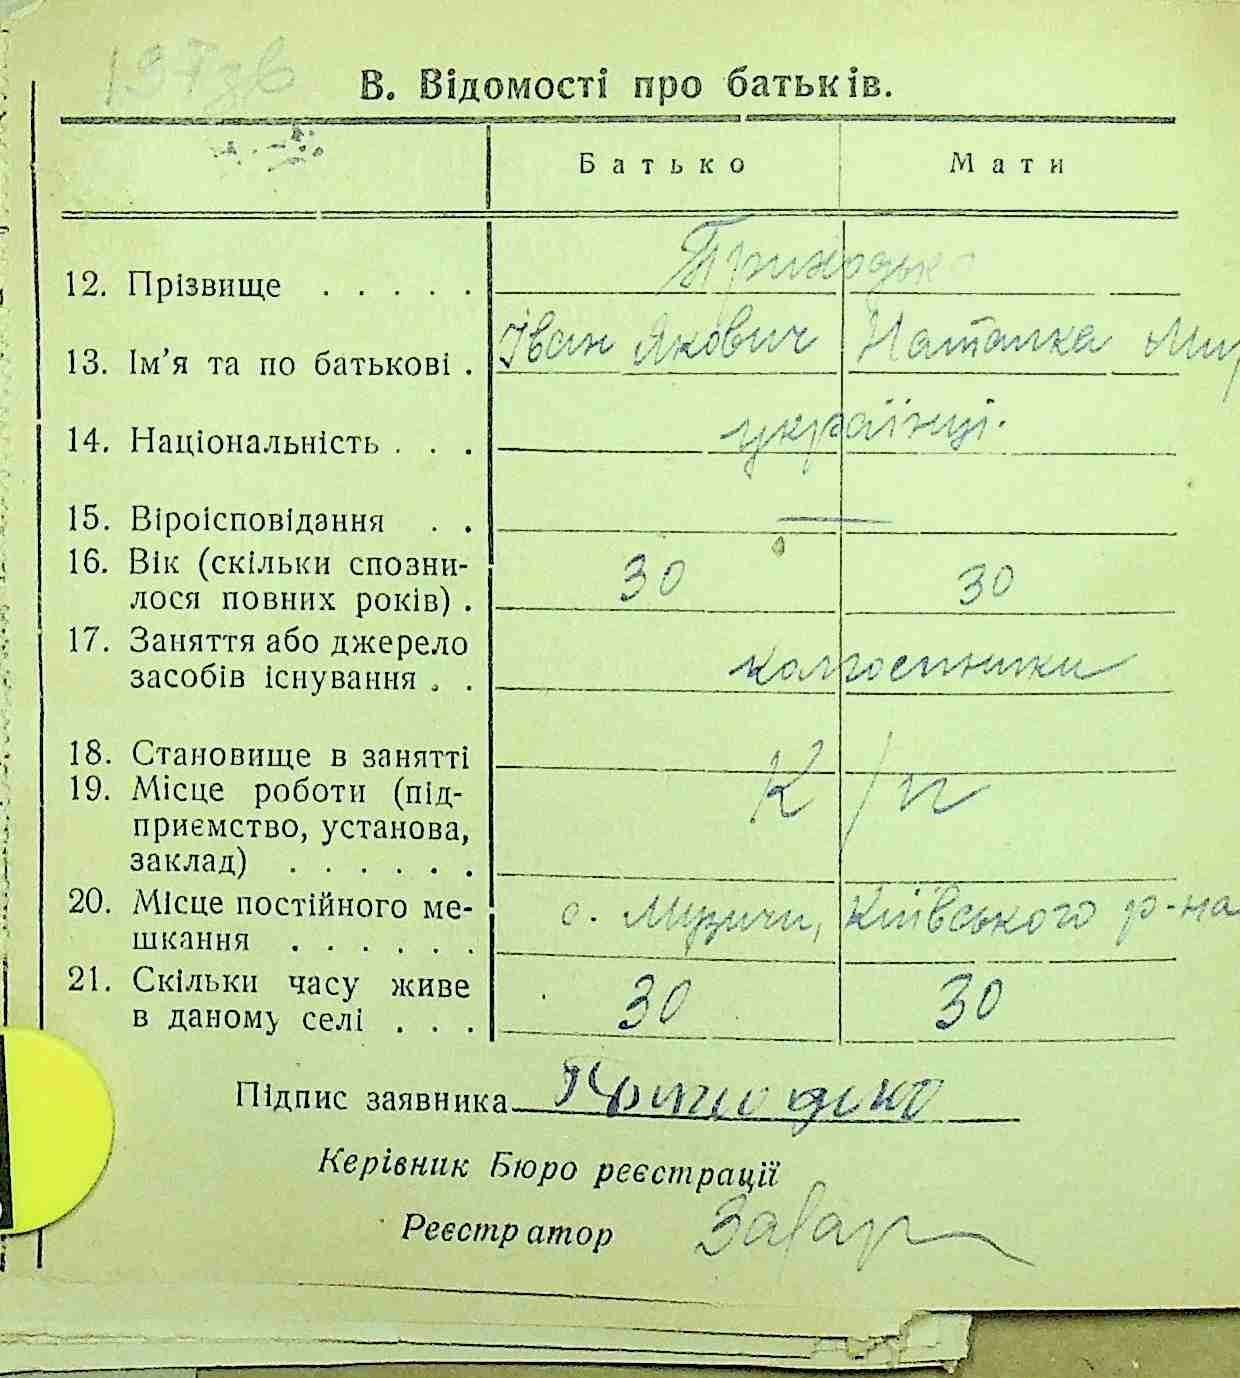 197зв
В. Відомості про батьків.
Батько Мати
12. Прізвище . . . . . Приходько
13. Ім'я та по батькові . Іван Якович Наталка Мир
14. Національність . . . українці.
15. Віроісповідання . . —
16. Вік (скільки сповни-
лося повних років) . 30 30
17. Заняття або джерело
засобів існування . . колгоспники
18. Становище в занятті
19. Місце роботи (під-
приємство, установа,
заклад) . . . . . . К/п
20. Місце постійного ме-
шкання . . . . . . с. Музичи, Київського р-на
21. Скільки часу живе
в даному селі . . . 30 30
Підпис заявника Приходько
Керівник Бюро реєстрації
Реєстратор